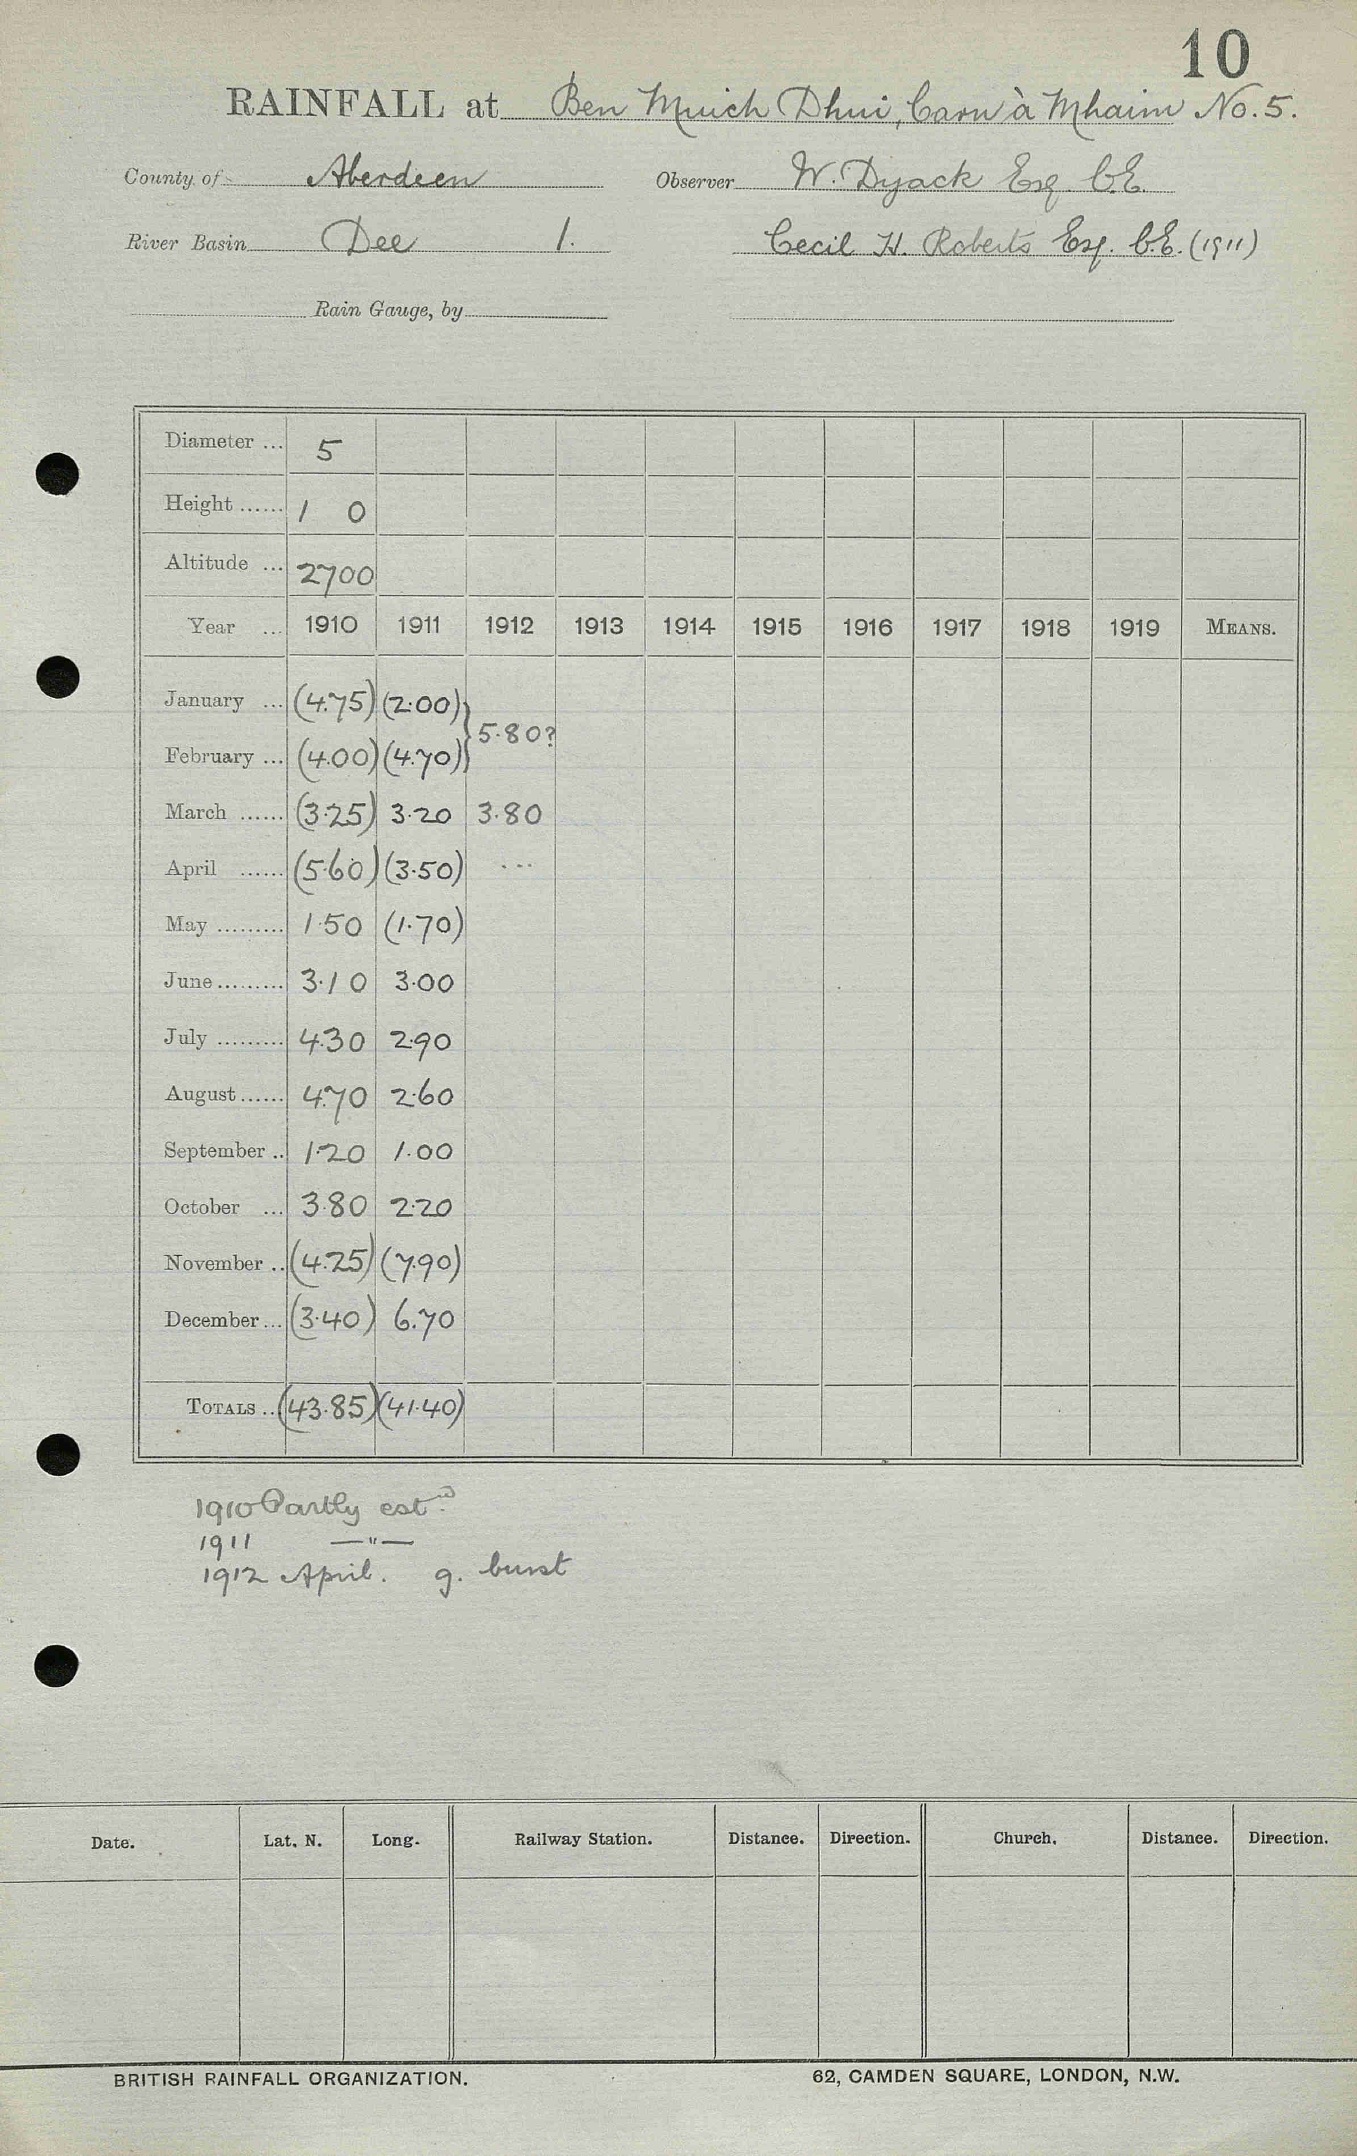 10
RAINFALL at Ben Muich Dhui, Carn à Mhaim No. 5.
County of Aberdeen Observer W. Dyack Esq. C.E.
River Basin Dee 1. Cecil H. Roberts Esq. C.E. (1911)
Rain Gauge, by
Diameter ... 5
Height ...... 1 0
Altitude ... 2700
Year ... 1910 1911 1912 1913 1914 1915 1916 1917 1918 1919 MEANS.
January ... (4.75) (2.00)
} 5.80?
February ... (4.00) (4.70)
March ...... (3.25) 3.20 3.80
April ...... (5.60) (3.50) ...
May ......... 1.50 (1.70)
June ......... 3.10 3.00
July ......... 4.30 2.90
August ...... 4.70 2.60
September .. 1.20 1.00
October ... 3.80 2.20
November .. (4.25) (7.90)
December ... (3.40) 6.70
TOTALS .. (43.85) (41.40)
1910 Partly estd
1911 —"—
1912 April. g. burst
Date. Lat. N. Long. Railway Station. Distance. Direction. Church. Distance. Direction.
BRITISH RAINFALL ORGANIZATION. 62, CAMDEN SQUARE, LONDON, N.W.